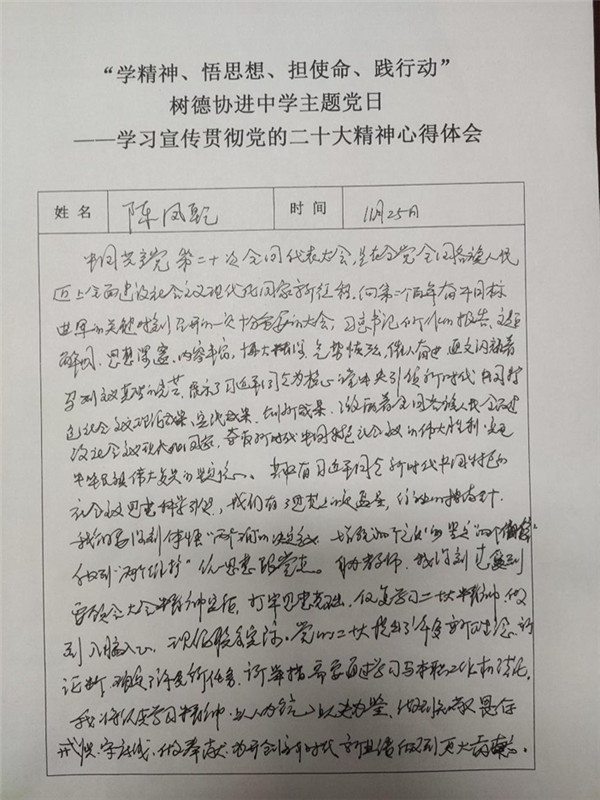 “学精神、悟思想、担使命、践行动”
树德协进中学主题党日
——学习宣传贯彻党的二十大精神心得体会
姓名 陈凤 时间 11月25日
中国共产党第二十次全国代表大会,是在全党全国各族人民
迈上全面建设社会主义现代化国家新征程,向第二个百年奋斗目标
进军的关键时刻召开的一次十分重要的大会,习总书记所作的报告,主题
鲜明、思想深邃、内容丰富、博大精深、气势恢宏、催人奋进,通文闪耀着
马列主义真理的光芒,展示了习近平同志为核心的党中央引领新时代中国特
色社会主义理论成果、实践成果、创新成果,激励着全国各族人民全面建
设社会主义现代化国家,夺取新时代中国特色社会主义的伟大胜利,实现
中华民族伟大复兴的坚定信心。 有习近平同志新时代中国特色的
社会主义思想科学引领,我们有了思想的 ,行动的指南针。
我们要深刻领悟“两个确立”的决定性意义,增强“四个意识”坚定“四个自信”
做到“两个维护”,从思想跟党走。 教师,我深刻
领会大会精神实质,打牢思想基础,认真学习二十大精神,做
到入脑入心, 联系实际。党的二十大提出了许多新理念、新
论断,确定了许多新任务、新举措,需要通过学习与本职工作相结合,
我将认真学习精神,以人为 ,以史为鉴,做到
守 ,做奉献,为开创新时代新 做到更大贡献。